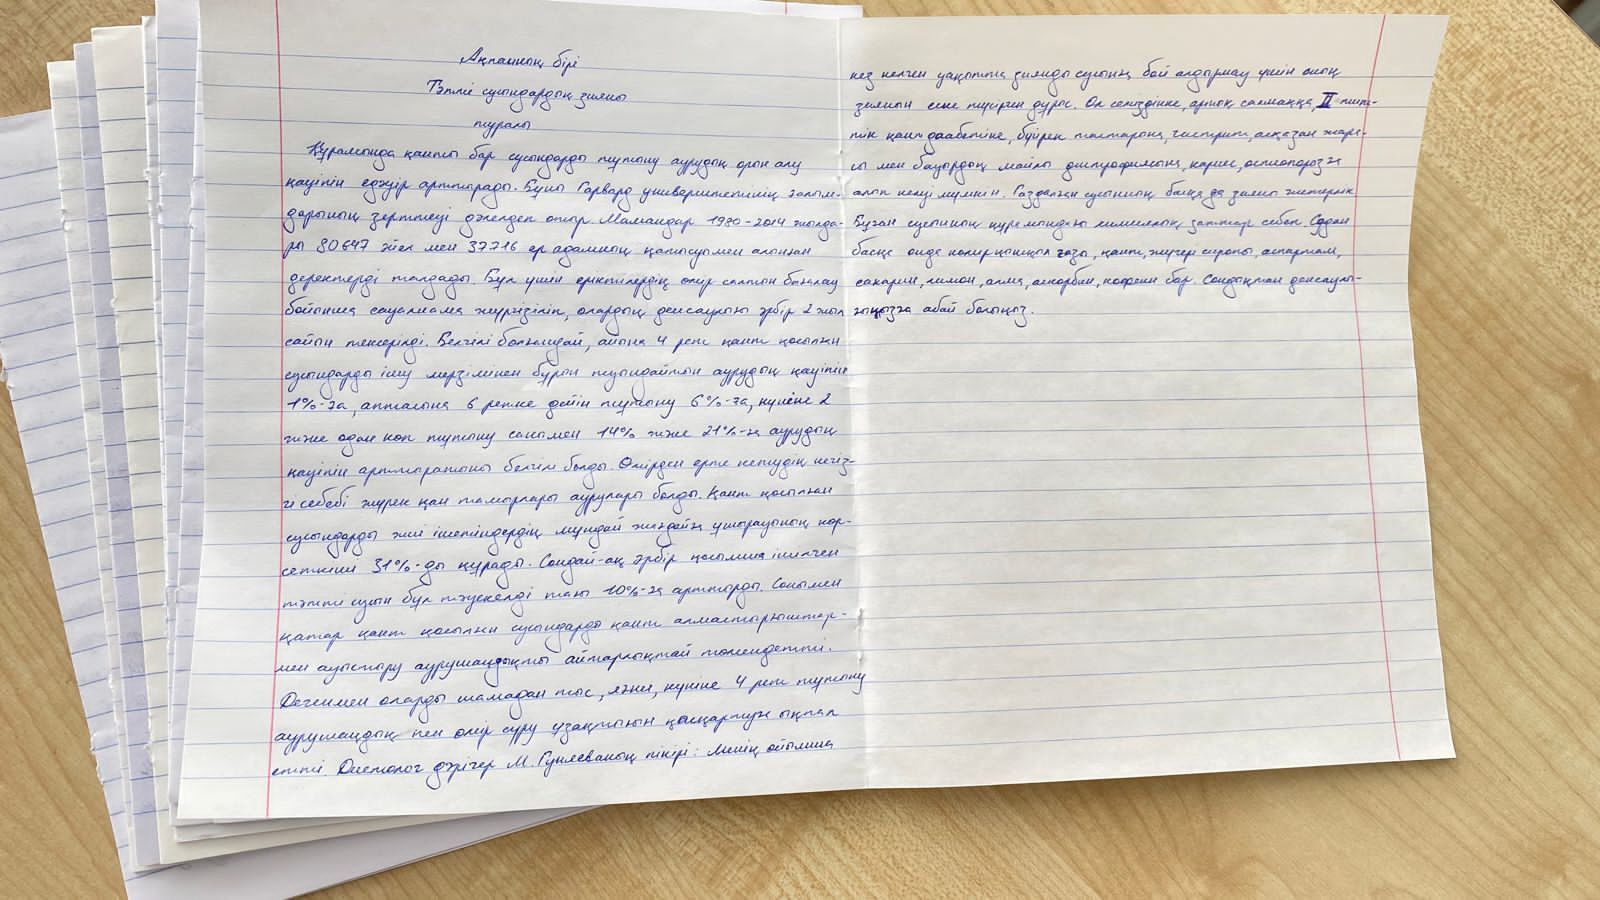 Ақпанның бірі
Тәтті сусындардың зияны
туралы
Құрамында қанты бар сусындарды тұтыну аурудың орын алу
қаупін едәуір арттырады. Бұны Гарвард университетінің ғалым-
дарының зерттеуі дәлелдеп отыр. Мамандар 1980-2014 жылда-
ры 80647 әйел мен 37716 ер адамның қатысуымен алынған
деректерді талдады. Бұл үшін еріктілердің өмір салтын бақылау
бойынша сауалнама жүргізіліп, олардың денсаулығы әрбір 2 жыл
сайын тексерілді. Белгілі болғандай, айына 4 рет қант қосылған
сусындарды ішу мерзімінен бұрын туындайтын аурудың қаупін
1%-ға, аптасына 6 ретке дейін тұтыну 6%-ға, күніне 2
және одан көп тұтыну сәйкесімен 14% және 21%-ға аурудың
қаупін арттыратыны белгілі болды. Өмірден ерте кетудің негіз-
гі себебі жүрек қан тамырлары аурулары болды. Қант қосылған
сусындарды жиі ішетіндердің мұндай жағдайға ұшырауының көр-
сеткіші 31%-ды құрады. Сондай-ақ әрбір қосымша ішілген
тәтті сусын бұл тәуекелді тағы 10%-ға арттырды. Сонымен
қатар қант қосылған сусындарды қант алмастырғыштар-
мен ауыстыру аурушаңдықты айтарлықтай төмендетті.
Дегенмен оларды шамадан тыс, яғни, күніне 4 рет тұтыну
аурушаңдық пен өмір сүру ұзақтығын қысқартуға ықпал
етті Диетолог дәрігер М. Гуняеваның пікірі: Менің ойымша
кез келген уақытта зиянды сусынға бой алдырмау үшін оның
зиянын еске түсірген дұрыс. Ол семіздікке, артық салмаққа, II тип-
тік қант диабетіне, бүйрек тастарына, гастрит, асқазан жара-
сы мен бауырдың майлы дистрофиясына, кариес, остеопорозға
алып келуі мүмкін. Газдалған сусынның басқа да зияны жетерлік
Бұған сусынның құрамындағы химиялық заттар себеп. Содан
басқа онда көмірқышқыл газы, қант, жүгері сиропы, аспартам,
сахарин, лимон, алма, аскорбин, кофеин бар. Сондықтан денсаулы-
ғыңызға абай болыңыз.